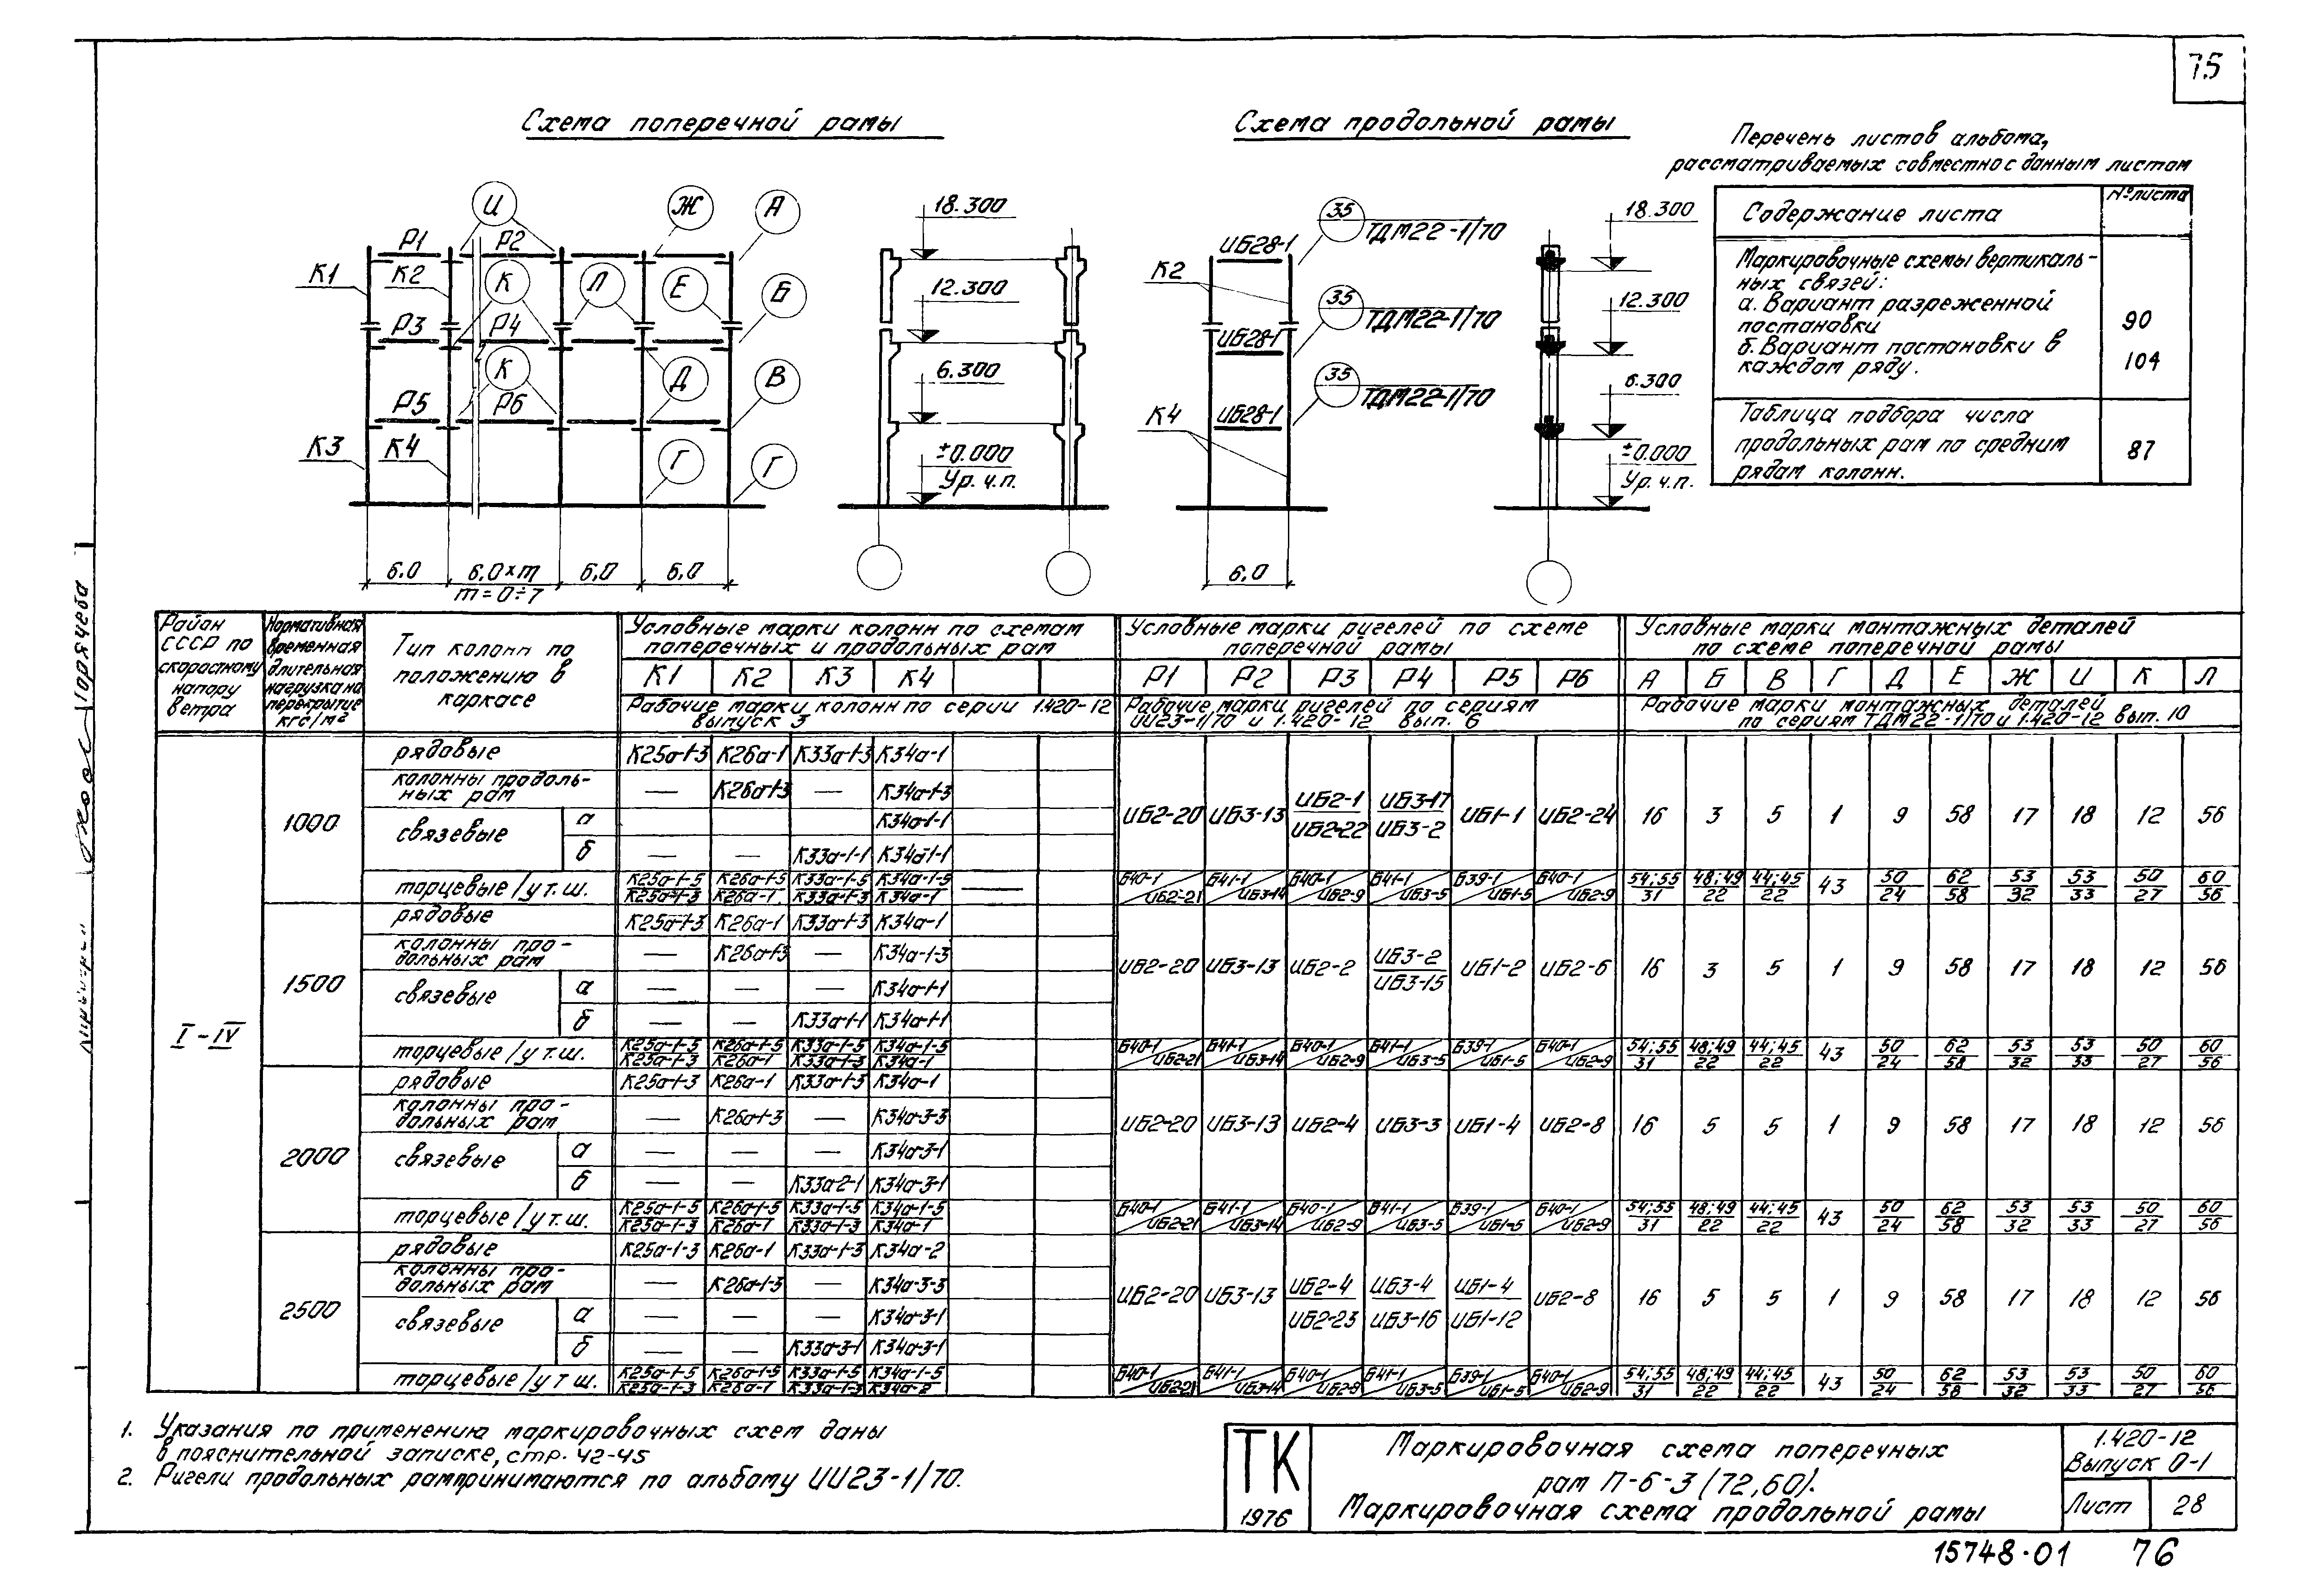 75
Схема поперечной рамы
Схема продольной рамы
Перечень листов альбома,
рассматриваемых совместно с данным листом
Содержание листа
№ листа
Маркировочные схемы вертикаль-
ных связей:
а. Вариант разреженной
постановки
90
б. Вариант постановки в
каждом ряду.
104
Таблица подбора числа
продольных рам по средним
рядам колонн.
87
И Ж А
Р1 Р2
К1 К2 К Л Е Б
Р3 Р4
К Д В
Р5 Р6
К3 К4 Г Г
6.0 6.0×m 6.0 6.0
m=0÷7
18.300
12.300
6.300
±0.000
Ур. ч.п.
ИБ28-1 35 ТДМ22-1/70
К2
ИБ28-1 35 ТДМ22-1/70
К4 ИБ28-1 35 ТДМ22-1/70
6.0
18.300
12.300
6.300
±0.000
Ур. ч.п.
Район СССР по скоростному напору ветра
Нормативная временная длительная нагрузка на перекрытие кгс/м²
Тип колонн по положению в каркасе
Условные марки колонн по схемам поперечных и продольных рам
Условные марки ригелей по схеме поперечной рамы
Условные марки монтажных деталей по схеме поперечной рамы
К1 К2 К3 К4 Р1 Р2 Р3 Р4 Р5 Р6 А Б В Г Д Е Ж И К Л
Рабочие марки колонн по серии 1.420-12 выпуск 3
Рабочие марки ригелей по сериям ИИ23-1/70 и 1.420-12 вып. 6
Рабочие марки монтажных деталей по сериям ТДМ22-1/70 и 1.420-12 вып. 10
I-IV
1000
рядовые К25а-1-3 К26а-1 К33а-1-3 К34а-1
колонны продоль-ных рам — К26а-1-3 — К34а-1-3
связевые а К34а-1-1
б — — К33а-1-1 К34а-1-1
ИБ2-20 ИБ3-13 ИБ2-1/ИБ2-22 ИБ3-17/ИБ3-2 ИБ1-1 ИБ2-24 16 3 5 1 9 58 17 18 12 56
торцевые/у т.ш. К25а-1-5/К25а-1-3 К26а-1-5/К26а-1 К33а-1-5/К33а-1-3 К34а-1-5/К34а-1 —
Б40-1/ИБ2-21 Б41-1/ИБ3-14 Б40-1/ИБ2-9 Б41-1/ИБ3-5 Б39-1/ИБ1-5 Б40-1/ИБ2-9 54;55/31 48;49/22 44;45/22 43 50/24 62/58 53/32 53/33 50/27 60/56
1500
рядовые К25а-1-3 К26а-1 К33а-1-3 К34а-1
колонны про-дольных рам — К26а-1-3 — К34а-1-3
связевые а — — — К34а-1-1
б — — К33а-1-1 К34а-1-1
ИБ2-20 ИБ3-13 ИБ2-2 ИБ3-2/ИБ3-15 ИБ1-2 ИБ2-6 16 3 5 1 9 58 17 18 12 56
торцевые/у т.ш. К25а-1-5/К25а-1-3 К26а-1-5/К26а-1 К33а-1-5/К33а-1-3 К34а-1-5/К34а-1
Б40-1/ИБ2-21 Б41-1/ИБ3-14 Б40-1/ИБ2-9 Б41-1/ИБ3-5 Б39-1/ИБ1-5 Б40-1/ИБ2-9 54;55/31 48;49/22 44;45/22 43 50/24 62/58 53/32 53/33 50/27 60/56
2000
рядовые К25а-1-3 К26а-1 К33а-1-3 К34а-1
колонны про-дольных рам — К26а-1-3 — К34а-3-3
связевые а — — — К34а-3-1
б — — К33а-2-1 К34а-3-1
ИБ2-20 ИБ3-13 ИБ2-4 ИБ3-3 ИБ1-4 ИБ2-8 16 5 5 1 9 58 17 18 12 56
торцевые/у т.ш. К25а-1-5/К25а-1-3 К26а-1-5/К26а-1 К33а-1-5/К33а-1-3 К34а-1-5/К34а-1
Б40-1/ИБ2-21 Б41-1/ИБ3-14 Б40-1/ИБ2-9 Б41-1/ИБ3-5 Б39-1/ИБ1-5 Б40-1/ИБ2-9 54;55/31 48;49/22 44;45/22 43 50/24 62/58 53/32 53/33 50/27 60/56
2500
рядовые К25а-1-3 К26а-1 К33а-1-3 К34а-2
колонны про-дольных рам — К26а-1-3 — К34а-3-3
связевые а — — — К34а-3-1
б — — К33а-3-1 К34а-3-1
ИБ2-20 ИБ3-13 ИБ2-4/ИБ2-23 ИБ3-4/ИБ3-16 ИБ1-4/ИБ1-12 ИБ2-8 16 5 5 1 9 58 17 18 12 56
торцевые/у т.ш. К25а-1-5/К25а-1-3 К26а-1-5/К26а-1 К33а-1-5/К33а-1-3 К34а-1-5/К34а-2
Б40-1/ИБ2-21 Б41-1/ИБ3-14 Б40-1/ИБ2-9 Б41-1/ИБ3-5 Б39-1/ИБ1-5 Б40-1/ИБ2-9 54;55/31 48;49/22 44;45/22 43 50/24 62/58 53/32 53/33 50/27 60/56
1. Указания по применению маркировочных схем даны
в пояснительной записке, стр. 42-45
2. Ригели продольных рам принимаются по альбому ИИ23-1/70.
ТК
1976
Маркировочная схема поперечных
рам П-6-3 (72,60).
Маркировочная схема продольной рамы
1.420-12
Выпуск 0-1
Лист 28
15748-01 76
Горячева